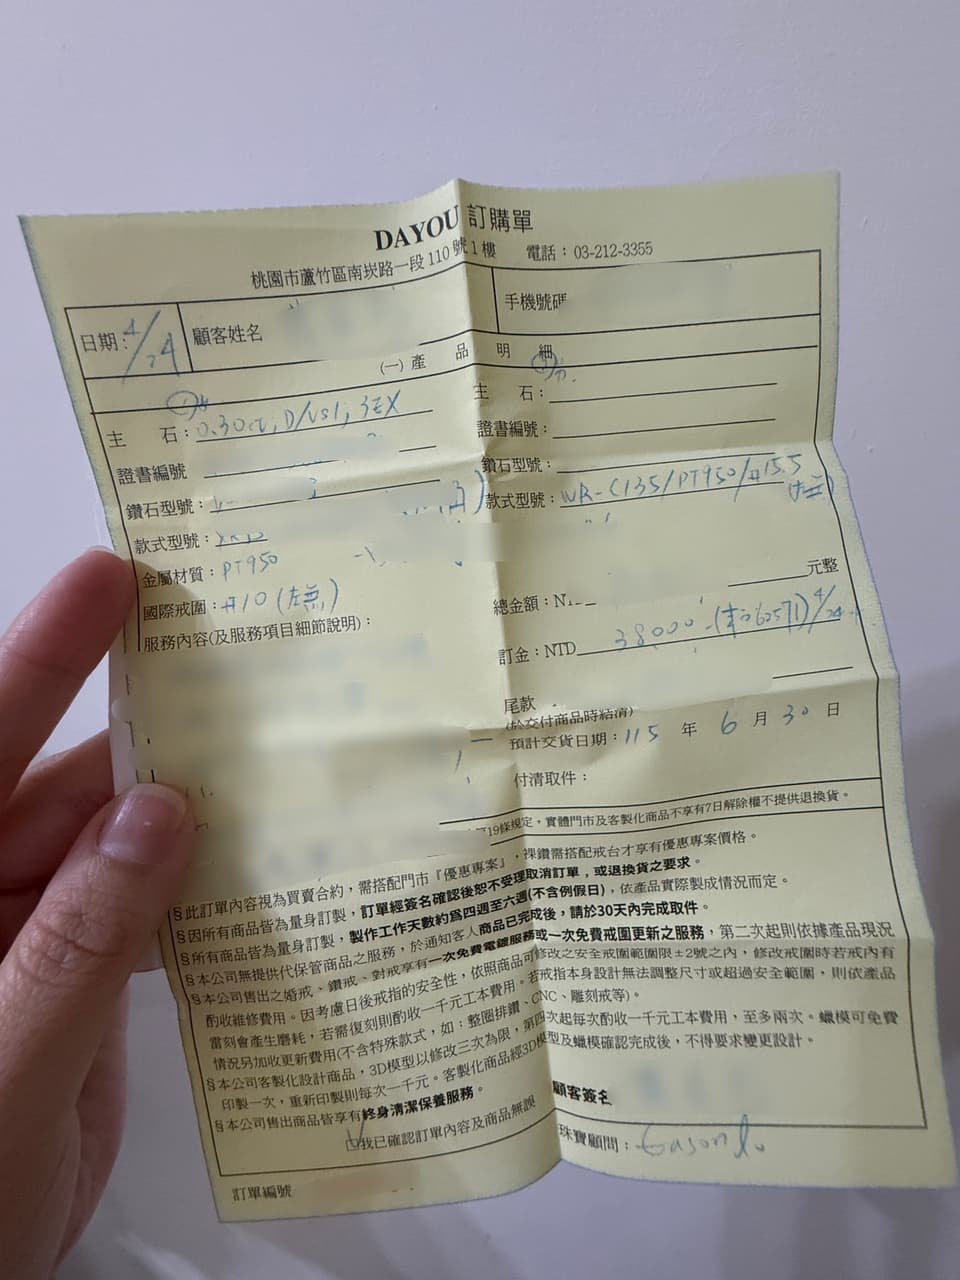 DAYOU 訂購單
桃園市蘆竹區南崁路一段 110 號 1 樓 電話：03-212-3355
日期：4/24 顧客姓名 手機號碼
(一) 產 品 明 細
主 石：0.30ct, D/VS1, 3EX
證書編號
鑽石型號：
款式型號：
金屬材質：PT950
國際戒圍：#10 (左無)
服務內容(及服務項目細節說明)：
主 石：
證書編號：
鑽石型號：
款式型號：WR-C135/PT950/#15.5
元整
總金額：
訂金：NTD 38000 4/24
尾款
(於交付商品時結清)
預計交貨日期：115 年 6 月 30 日
付清取件：
19條規定，實體門市及客製化商品不享有7日解除權不提供退換貨。
§此訂單內容視為買賣合約，需搭配門市『優惠專案』，裸鑽需搭配戒台才享有優惠專案價格。
§因所有商品皆為量身訂製，訂單經簽名確認後恕不受理取消訂單，或退換貨之要求。
§所有商品皆為量身訂製，製作工作天數約為四週至六週(不含例假日)，依產品實際製成情況而定。
§本公司無提供代保管商品之服務，於通知客人商品已完成後，請於30天內完成取件。
§本公司售出之婚戒、鑽戒、對戒享有一次免費電鍍服務或一次免費戒圍更新之服務，第二次起則依據產品現況
酌收維修費用。因考慮日後戒指的安全性，依照商品可修改之安全戒圍範圍限±2號之內，修改戒圍時若戒內有
雷刻會產生磨耗，若需復刻則酌收一千元工本費用。若戒指本身設計無法調整尺寸或超過安全範圍，則依產品
情況另加收更新費用(不含特殊款式，如：整圈排鑽、CNC、雕刻戒等)。
§本公司客製化設計商品，3D模型以修改三次為限，第四次起每次酌收一千元工本費用，至多兩次。蠟模可免費
印製一次，重新印製則每次一千元。客製化商品經3D模型及蠟模確認完成後，不得要求變更設計。
§本公司售出商品皆享有終身清潔保養服務。
顧客簽名
☑我已確認訂單內容及商品無誤
珠寶顧問：
訂單編號